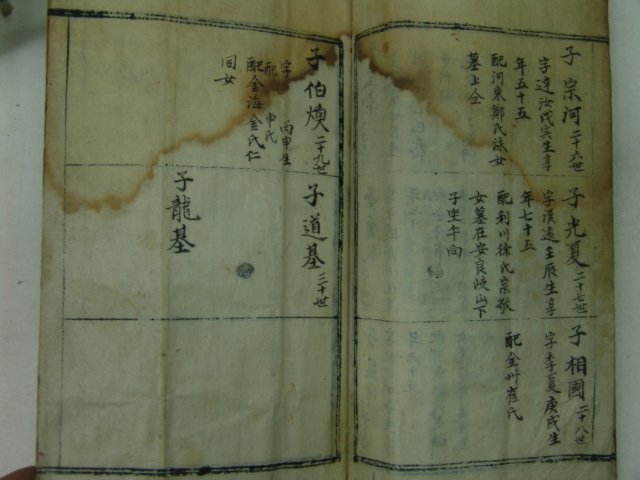 子宗河二十六世
字達汝戊寅生享
年五十五
配河東鄭氏 女
墓上仝
子光夏二十七世
字漢遠壬辰生享
年七十五
配利川徐氏宗敬
女墓在安良 山下
子坐午向
子相國二十八世
字季夏庚戌生
配全州崔氏
子伯煥二十九世
字 丙申生
配 申氏
配金海金氏仁
同女
子道基三十世
子龍基